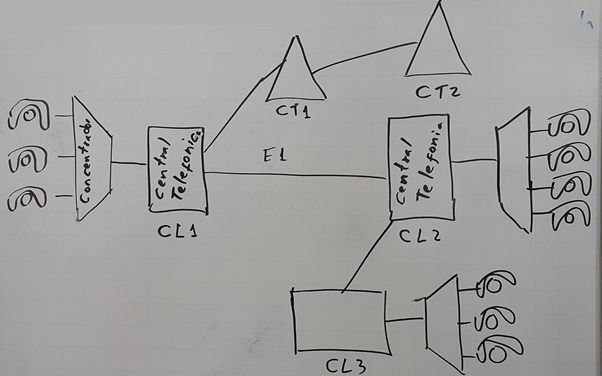 CT1
CT2
Concentrador
Central
Telefonica
CL1
E1
Central
Telefonia
CL2
CL3